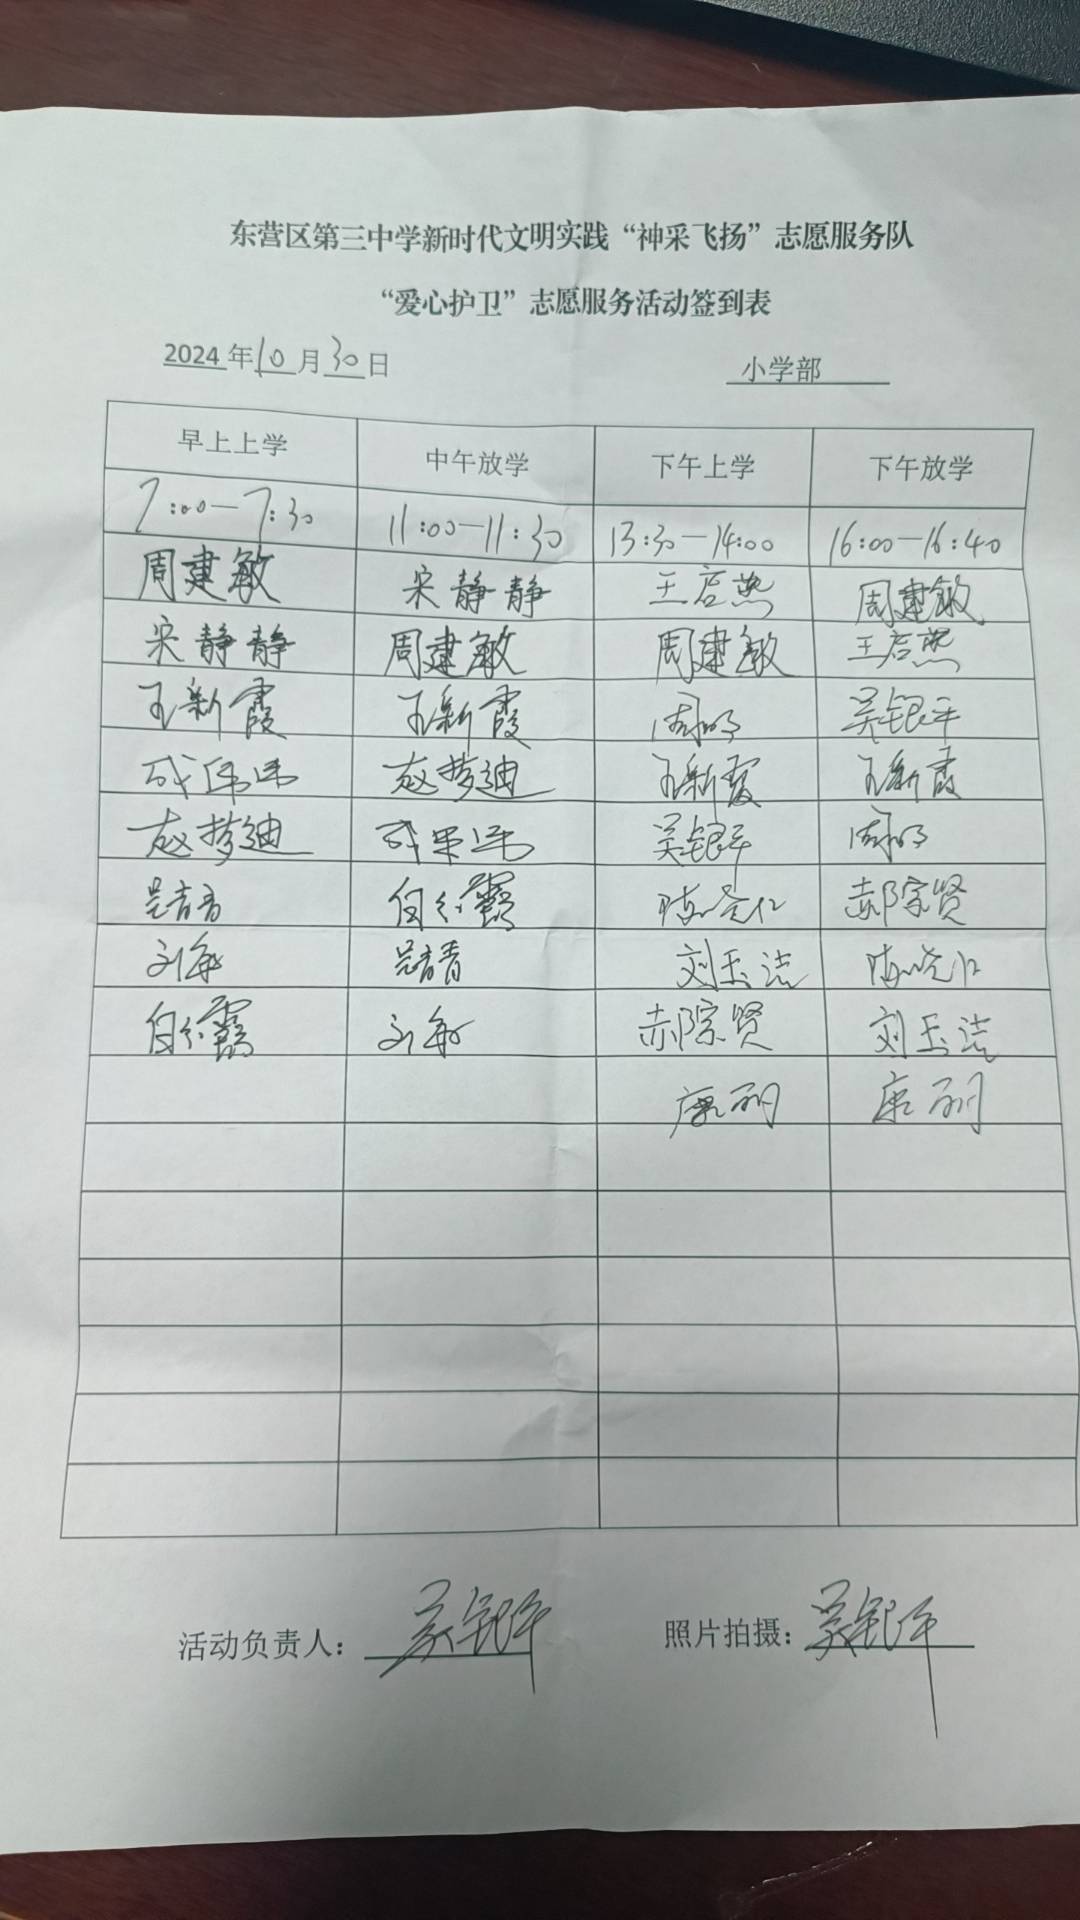 东营区第三中学新时代文明实践“神采飞扬”志愿服务队
“爱心护卫”志愿服务活动签到表
2024年10月30日 小学部
早上上学 中午放学 下午上学 下午放学
7:00—7:30 11:00—11:30 13:30—14:00 16:00—16:40
周建敏 宋静静 王启燕 周建敏
宋静静 周建敏 周建敏 王启燕
王新霞 王新霞 周明 吴银平
成伟伟 赵梦迪 王新霞 王新霞
赵梦迪 吴银平 周明
白红霞 陈晓红 郝宗贤
刘敏 刘玉洁 陈晓红
白红霞 刘敏 郝宗贤 刘玉洁
康丽 康丽
活动负责人：吴银平 照片拍摄：吴银平